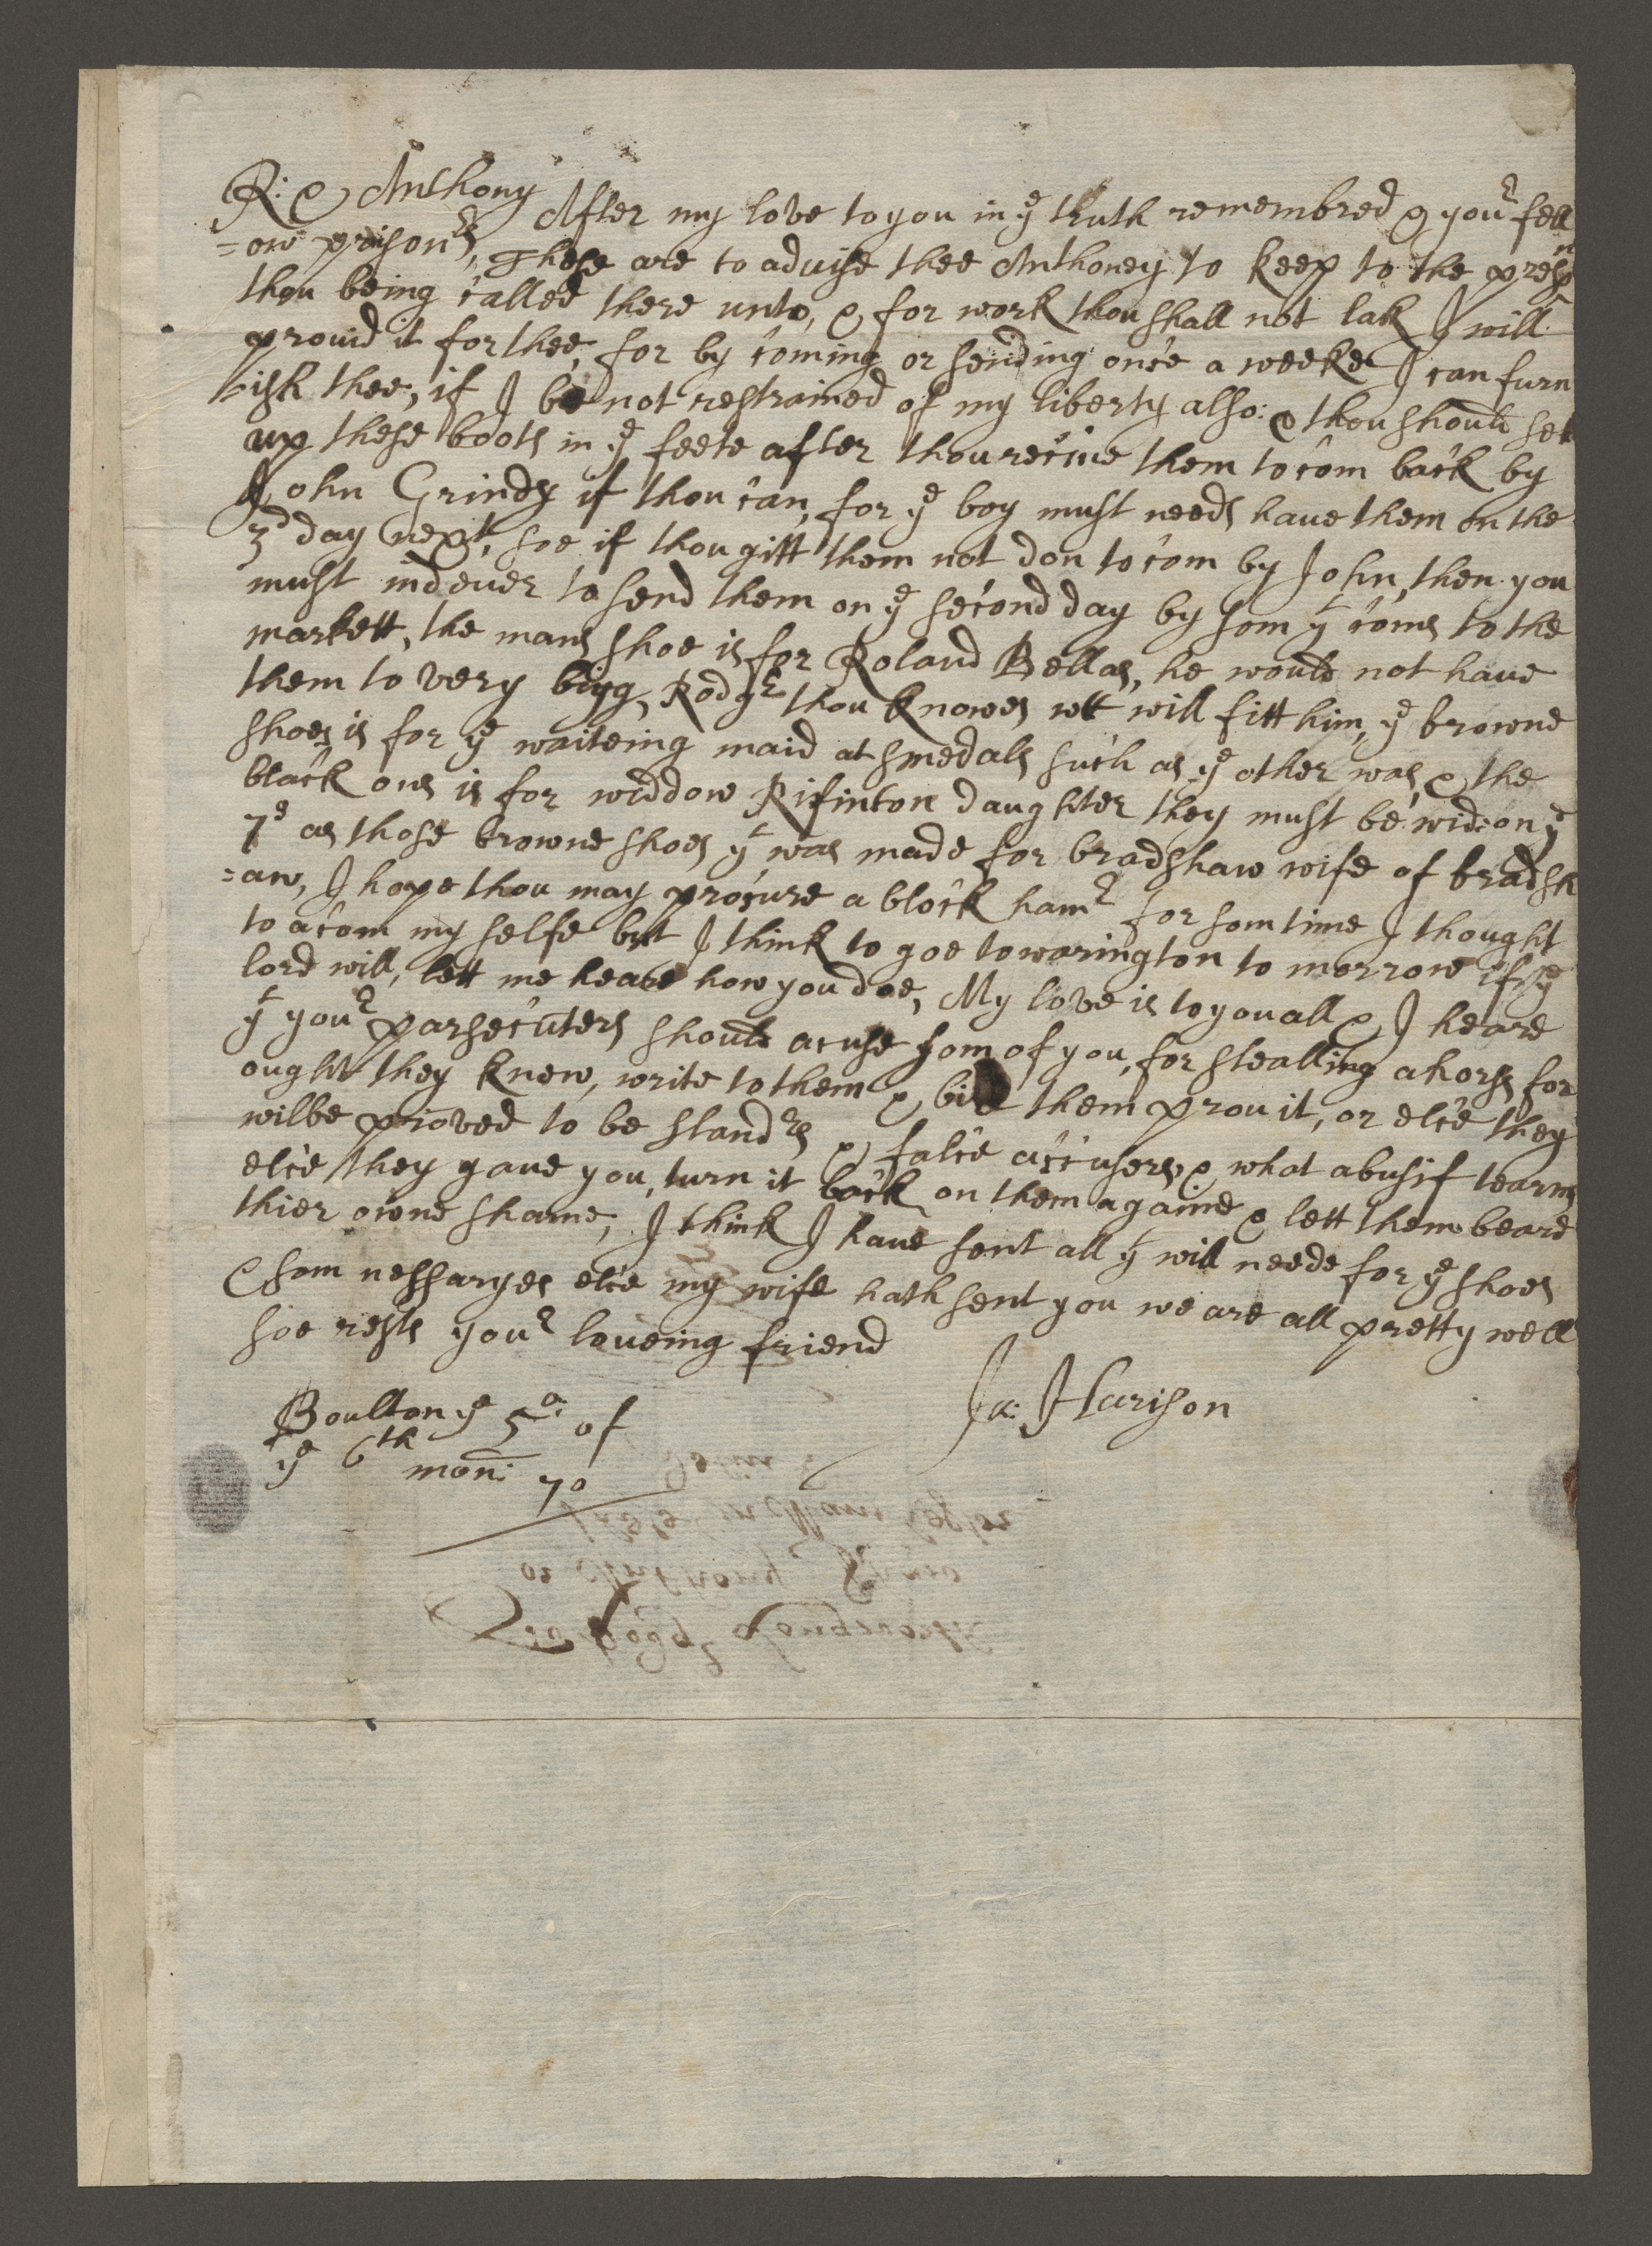 R: & Anthony
After my love to you in ye truth remembred & your fell
=ow prisonrs, These are to advise thee Anthoney to keep to the
thou being called there unto, & for work thou shall not lak I will
provid it for thee, for by coming or sending once a weeke I can furn
ish thee, if I be not restrained of my liberty also: & thou should set
up these boots in ye feete after thou recive them to com back by
John Grindy if thou can, for ye boy must needs have them on the
3d day next, soe if thou gitt them not don to com by John, then you
must indever to send them on ye second day by som yt coms to the
markett, the mans shoe is for Roland Bellas, he would not have
them to very bigg, Rodgr thou knowes wt will fitt him, ye browne
shoes is for ye waiteing maid at Smedals such as ye other was & the
black ons is for widdow Rifinton daughter they must be wid on ye
7s as those browne shoes yt was made for bradshaw wife of bradsh
=aw, I hope thou may procure a block hamr for som time I thought
to a com my selfe but I think to goe to warington to morrow if ye
lord will, lett me heare how you doe, My love is to you all & I heare
yt your parsecuters should acuse som of you, for stealling a hors for
ought they knew, write to them & bid them prov it, or elce they
wilbe proved to be slandrs & falce accusers, & what abusif tearms
elce they gave you, turn it back on them againe & lett them beare
thier owne shame, I think I have sent all yt will neede for ye shoes
& som nessaryes elce my wife hath sent you we are all pretty well
soe rests your loveing friend
Ja: Harison
Boulton ye 5o: of
ye 6th mon: 70